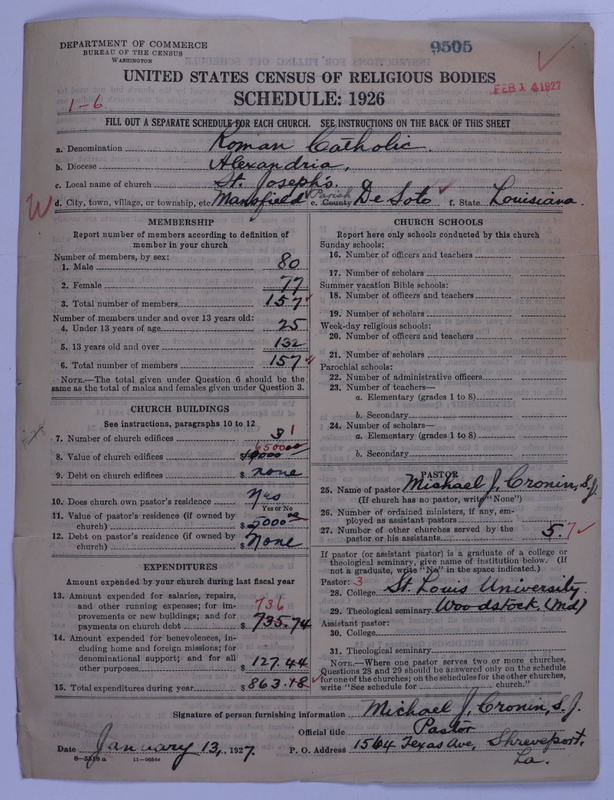 DEPARTMENT OF COMMERCE
BUREAU OF THE CENSUS
WASHINGTON
9505
UNITED STATES CENSUS OF RELIGIOUS BODIES
FEB 1 4 1927
SCHEDULE: 1926
1-6
FILL OUT A SEPARATE SCHEDULE FOR EACH CHURCH. SEE INSTRUCTIONS ON THE BACK OF THIS SHEET
a. Denomination Roman Catholic.
b. Diocese Alexandria,
c. Local name of church St. Joseph's.
W d. City, town, village, or township, etc. Mansfield e. County Parish De Soto f. State Louisiana.
MEMBERSHIP
Report number of members according to definition of
member in your church
Number of members, by sex:
1. Male 80
2. Female 77
3. Total number of members 157
Number of members under and over 13 years old:
4. Under 13 years of age 25
5. 13 years old and over 132
6. Total number of members 157
NOTE.—The total given under Question 6 should be the
same as the total of males and females given under Question 3.
CHURCH BUILDINGS
See instructions, paragraphs 10 to 12
7. Number of church edifices 3 1
8. Value of church edifices $ 6500
9. Debt on church edifices $ none
10. Does church own pastor's residence Yes
Yes or No
11. Value of pastor's residence (if owned by
church) $ 2000 00
12. Debt on pastor's residence (if owned by
church) $ None
EXPENDITURES
Amount expended by your church during last fiscal year
13. Amount expended for salaries, repairs,
and other running expenses; for im-
provements or new buildings; and for
payments on church debt $ 735.74 736
14. Amount expended for benevolences, in-
cluding home and foreign missions; for
denominational support; and for all
other purposes $ 127.44
15. Total expenditures during year $ 863.18
CHURCH SCHOOLS
Report here only schools conducted by this church
Sunday schools:
16. Number of officers and teachers
17. Number of scholars
Summer vacation Bible schools:
18. Number of officers and teachers
19. Number of scholars
Week-day religious schools:
20. Number of officers and teachers
21. Number of scholars
Parochial schools:
22. Number of administrative officers
23. Number of teachers—
a. Elementary (grades 1 to 8)
b. Secondary
24. Number of scholars—
a. Elementary (grades 1 to 8)
b. Secondary
PASTOR
25. Name of pastor Michael J. Cronin, S.J.
(If church has no pastor, write "None")
26. Number of ordained ministers, if any, em-
ployed as assistant pastors
27. Number of other churches served by the
pastor or his assistants 5 7
If pastor (or assistant pastor) is a graduate of a college or
theological seminary, give name of institution below. (If
not a graduate, write "No" in the space indicated.)
Pastor: 3
28. College St. Louis University
29. Theological seminary Woodstock (Md)
Assistant pastor:
30. College
31. Theological seminary
NOTE.—Where one pastor serves two or more churches,
Questions 28 and 29 should be answered only on the schedule
for one of the churches; on the schedules for the other churches,
write "See schedule for church."
Signature of person furnishing information Michael J. Cronin, S.J.
Official title Pastor
Date January 13, 1927. P. O. Address 1564 Texas Ave, Shreveport,
La.